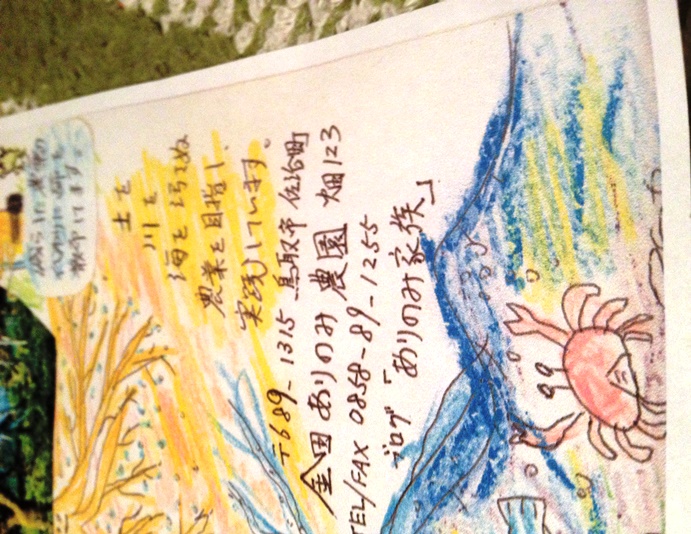 土を
川を
海を汚さぬ
農業を目指し、
実践しています。
〒689-1315 鳥取市 佐治町
金田ありのみ農園 畑123
TEL/FAX 0858-89-1255
ブログ「ありのみ家族」